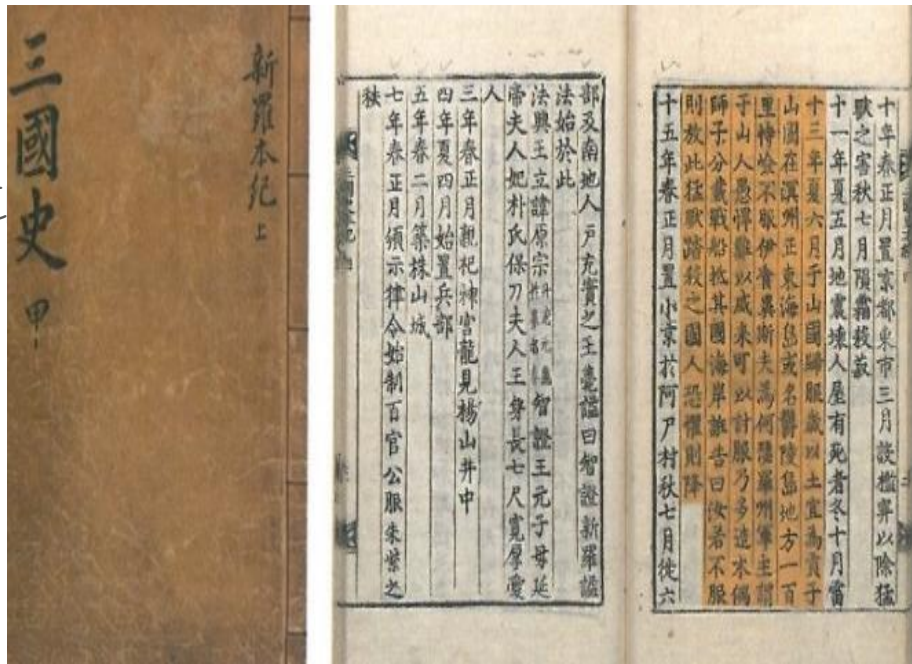 三國史 甲
新羅本紀 上
十年春正月置京都東市三月設檻穽以除猛
獸之害秋七月隕霜殺菽
十一年夏五月地震壞人屋有死者冬十月雷
十三年夏六月于山國歸服歲以土宜為貢于
山國在溟州正東海島或名欝陵島地方一百
里恃嶮不服伊飡異斯夫為何瑟羅州軍主謂
于山人愚悍難以威來可以計服乃多造木偶
師子分載戰船抵其國海岸誑告曰汝若不服
則放此猛獸踏殺之國人恐懼則降
十五年春正月置小京於阿尸村秋七月徙六
部及南地人戶充實之王薨謚曰智證新羅謚
法始於此
法興王立諱原宗冊府元龜姓募名泰智證王元子母延
帝夫人妃朴氏保刀夫人王身長七尺寬厚愛
人
三年春正月親祀神宮龍見楊山井中
四年夏四月始置兵部
五年春二月築株山城
七年春正月頒示律令始制百官公服朱紫之
秩